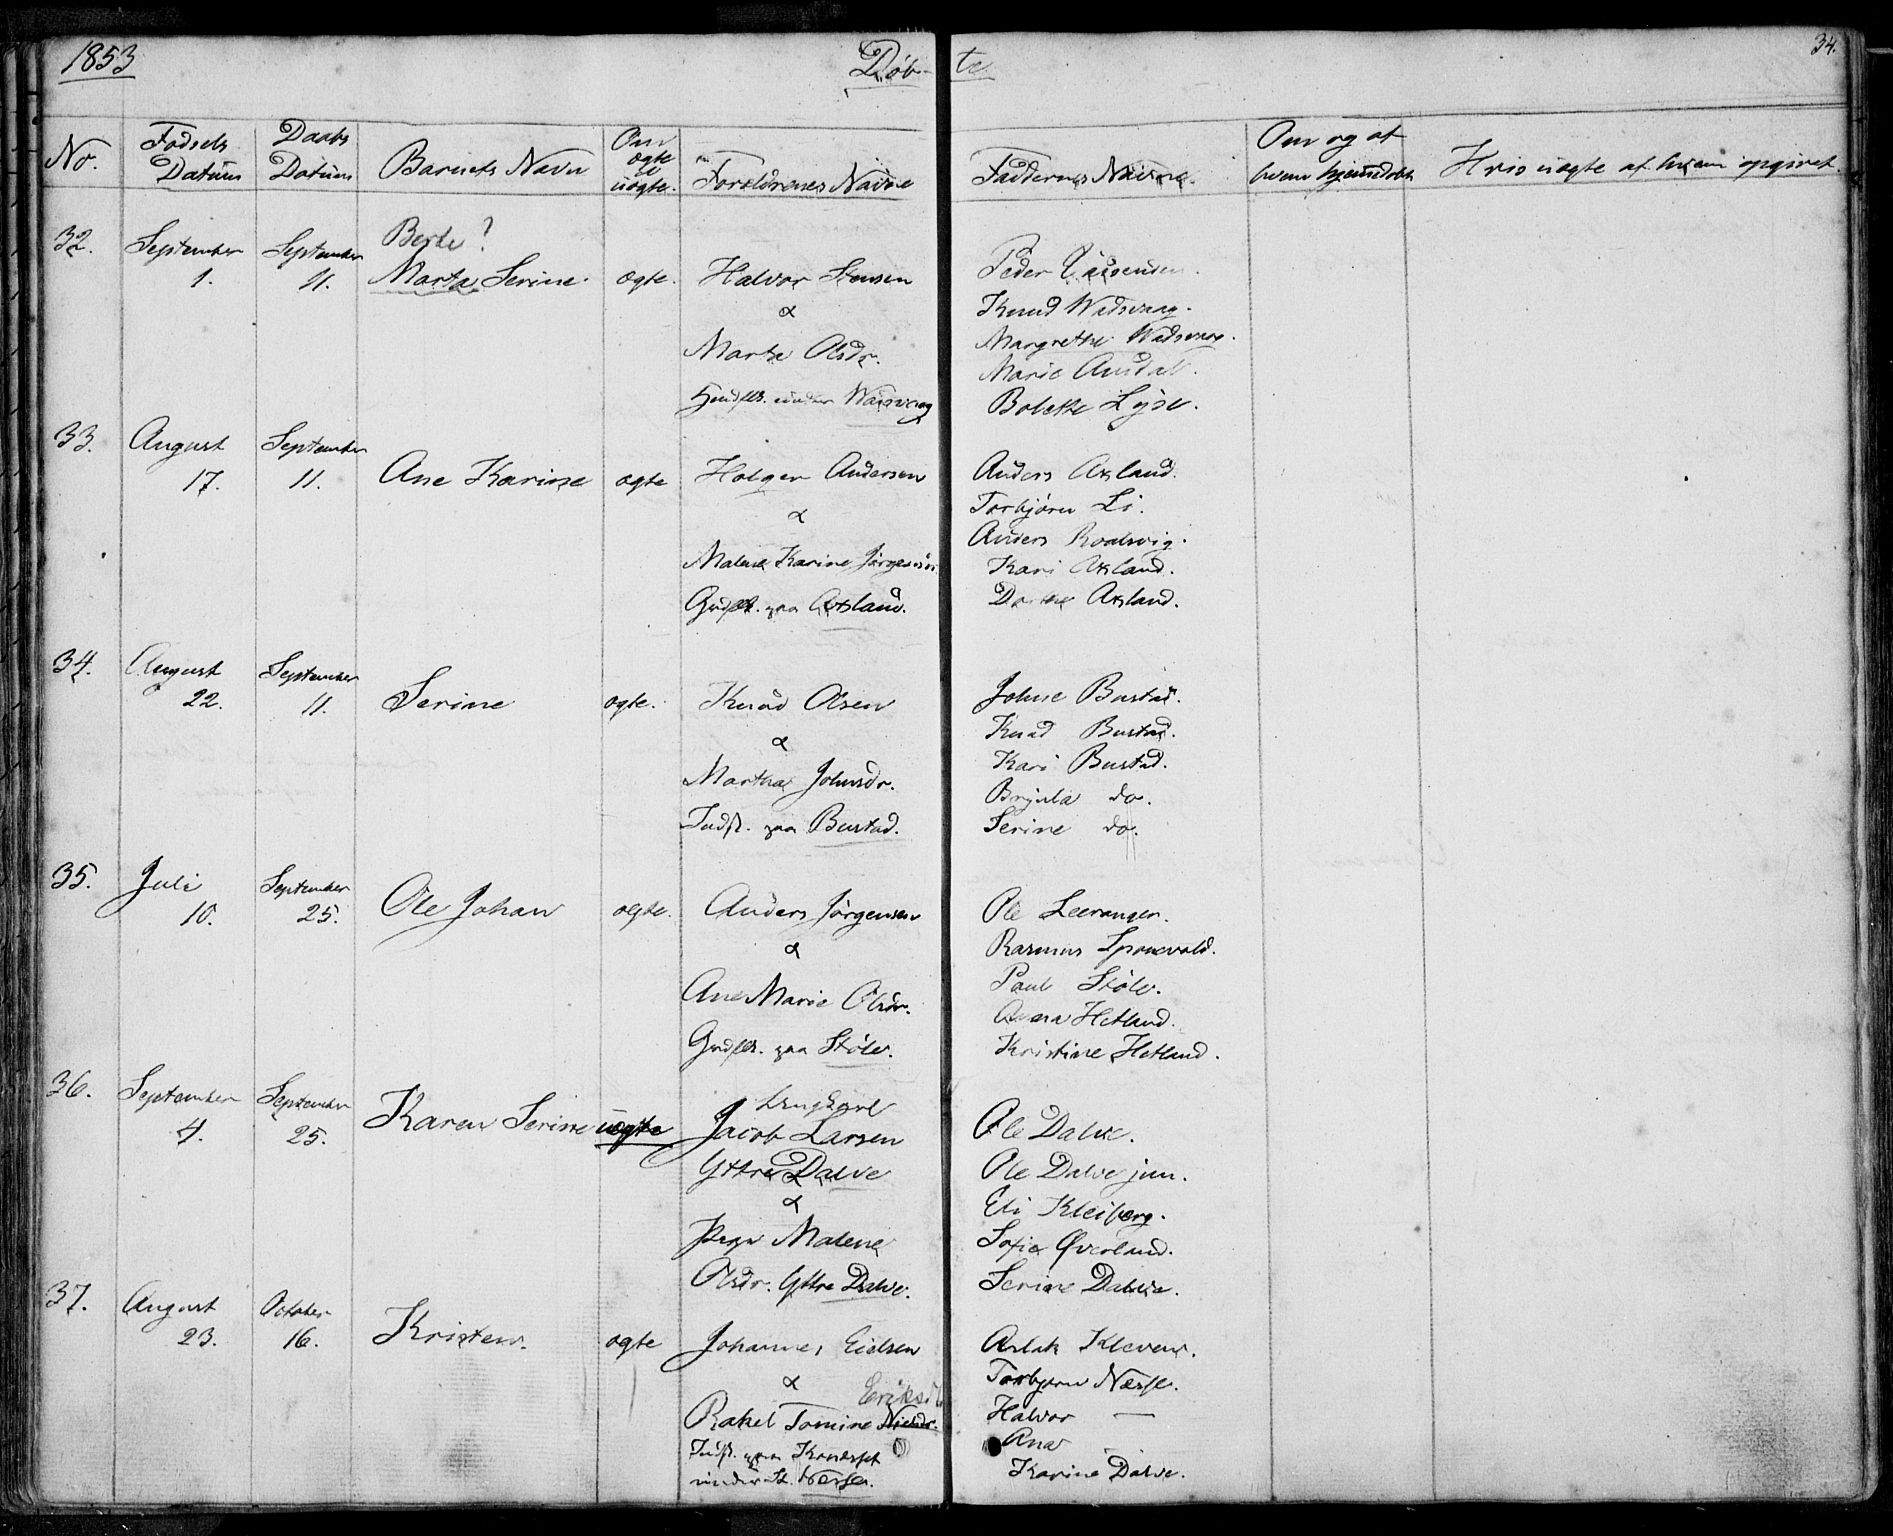 1853
Døb-
te
34.
No.
Fødsels Datum
Daabs Datum
Barnets Navn
Om ægte el uægte.
Forældrenes Navne
Faddernes Navne.
Om og af hvem hjemmedøbt
Hvis uægte af hvem opgivet.
32.
September 1.
September 11.
Berte?
Marta Serine.
ægte.
Halvor
&
Marta Olsdr.
under Wadsvaag
Peder
Knud Wadsvaag.
Margrethe Wadsvaag.
Marie
Bolette Lyse.
33.
August 17.
September 11.
Ane Karine
ægte
Holger Andersen
&
Malene Karine
Grdflk. paa Axland.
Anders Axland.
Torbjørn Li.
Anders Roalsvig.
Kari Axland.
Dorthe Axland.
34.
August 22.
September 11.
Serine
ægte.
Knud Olsen
&
Martha Johnsdr.
Indst. paa Bustad.
Johne Bustad.
Knud Bustad.
Kari Bustad.
do.
Serine do.
35.
Juli 10.
September 25.
Ole Johan
ægte.
Anders Jørgensen
&
Ane Marie Olsdr.
Grdflk. paa Støle.
Ole Leeranger.
Rasmus Sponevold.
Paul Støle.
Anna Hetland.
Kristine Hetland.
36.
September 4.
September 25.
Karen Serine
uægte
Ungkarl
Jacob Larsen
Yttre Dalve
&
Pige Malene
Olsdr. Yttre Dalve.
Ole Dalve.
Ole Dalve jun.
Eli Kleiberg.
Sofie Øverland.
Serine Dalve.
37.
August 23.
October 16.
Kristen.
ægte
Johannes Eielsen
&
Eriksd
Rakel Tomine Nielsdr.
Indst. paa
under St. Nesse.
Aslak Kleven.
Torbjørn Nesse.
Halvor —
Ana
Karine Dalve.